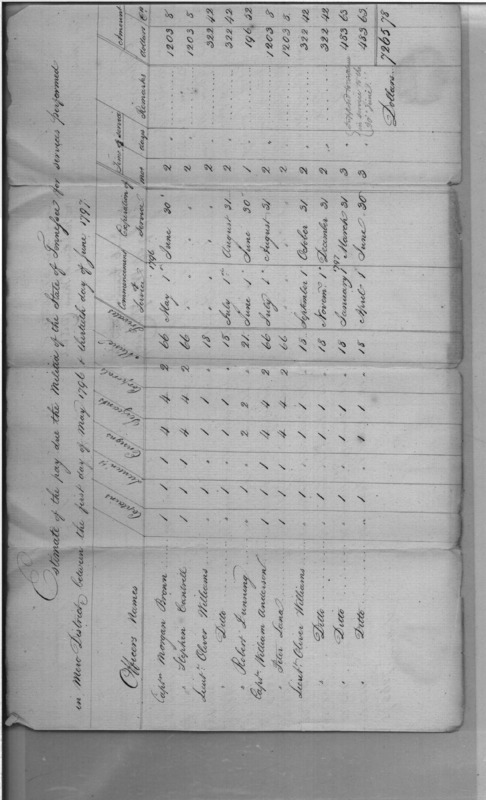 Estimate of the pay due the Militia of the State of Tennessee for services performed
in Mero District between the first day of May 1796 & thirtieth day of June 1797
Officers Names Captains Lieuts Ensigns Sergeants Corporals Privates Commencement of Service Expiration of Service Time of service mos days Remarks Amount Dollars Cts
Captn Morgan Brown 1 1 1 4 4 2 66 May 1st 1796 June 30 2 " 1203 8
" Stephen Cantrill 1 1 1 4 4 2 66 " " 2 " 1203 8
Lieut Oliver Williams " 1 " 1 1 " 18 " " 2 " 322 42
" Ditto " 1 " 1 1 " 18 July 1st August 31 2 " 322 42
" Robert " " " 2 2 " 21 June 1 June 30 1 " 196 32
Captn William Anderson 1 1 1 4 4 2 66 July 1 August 31 2 " 1203 8
" Peter 1 1 1 4 4 2 66 " " 2 " 1203 8
Lieut Oliver Williams " 1 " 1 1 " 18 September 1 October 31 2 " 322 42
" Ditto " 1 " 1 1 " 18 Novem 1st December 31 2 " 322 42
" Ditto " 1 " 1 1 " 18 January 1st 1797 March 31 3 " 483 63
" Ditto " 1 " 1 1 " 18 April 1 June 30 3 " 483 63
Dollars 7265 78